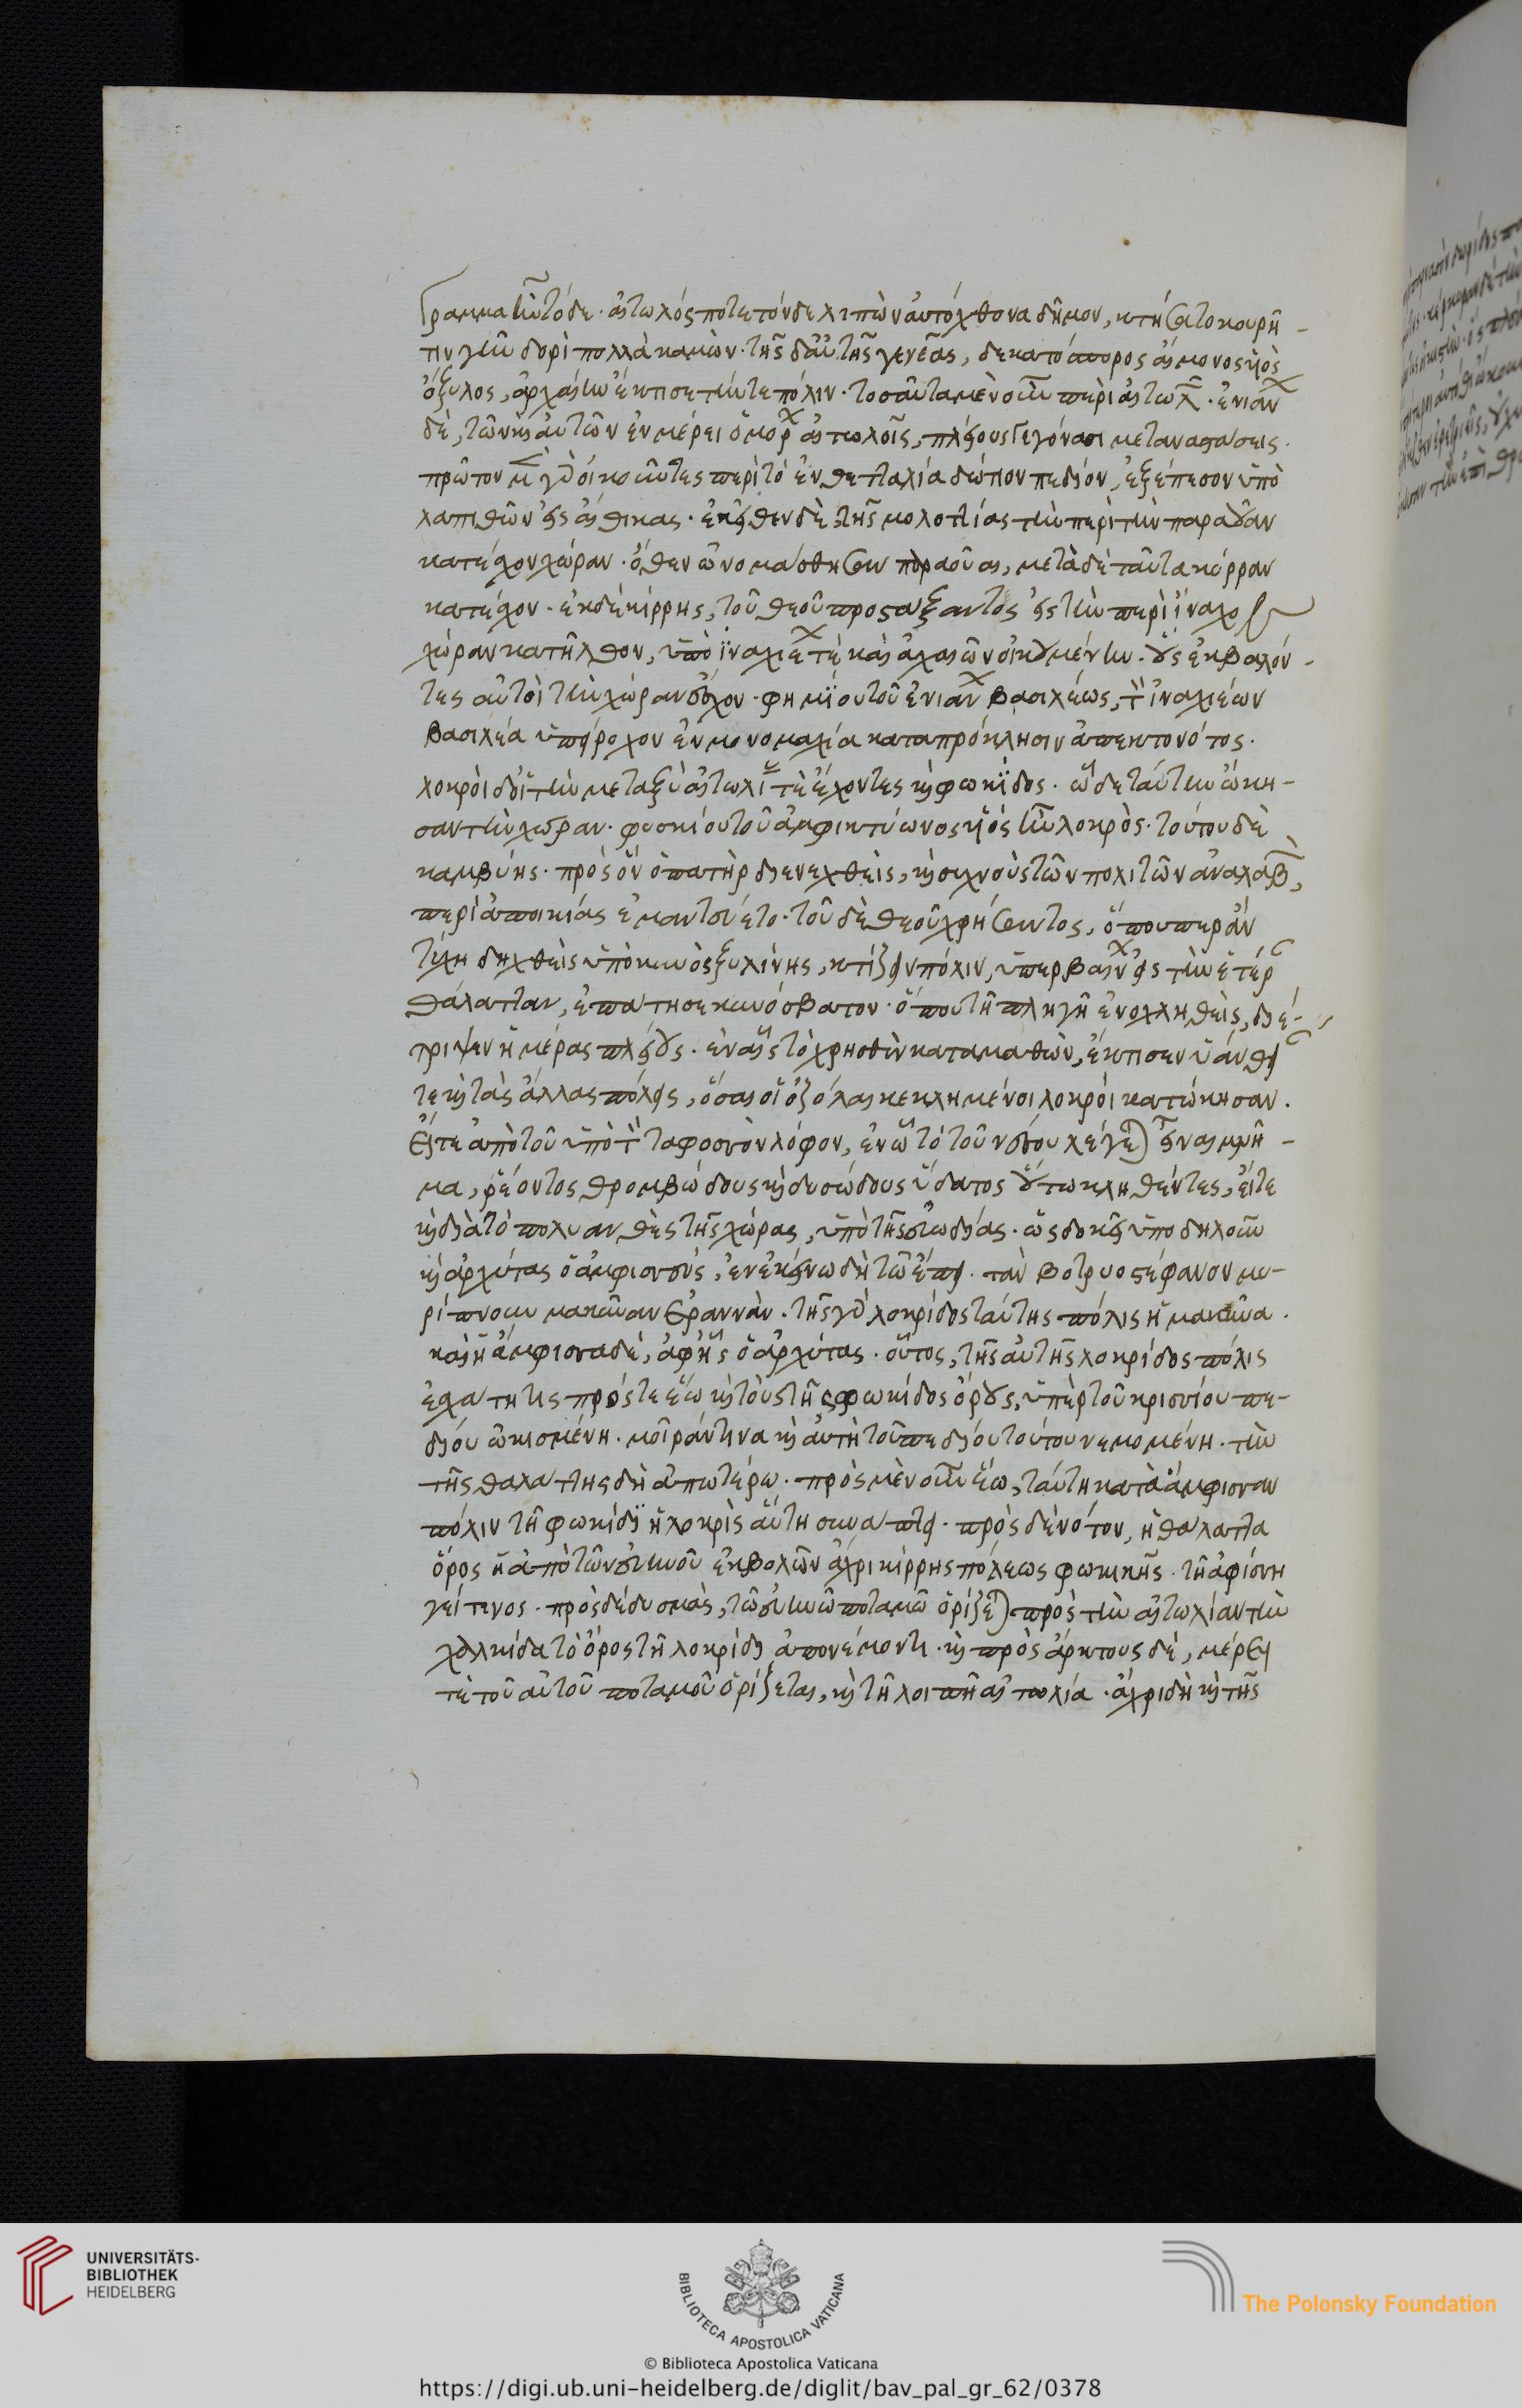 Γράμμα ἦν τόδε· αἰτωλός ποτε τόνδε λιπὼν αὐτόχθονα δῆμον, κτήσατο κουρῆ-
τιν γῆν δορὶ πολλὰ καμών· τῆς δ' αὐτῆς γενεᾶς, δεκατόσπορος αἵμονος υἱὸς
ὄξυλος, ἀρχαίην ἔκτισε τήνδε πόλιν· τοσαῦτα μὲν οὖν περὶ αἰτωλ. ἐνιᾶν
δὲ, τῶν καὶ αὐτῶν ἐν μέρει ὁμόρ αἰτωλοῖς, πλείους γεγόνασι μεταναστάσεις.
πρῶτον μὲν γὰρ οἰκοῦντες περὶ τὸ ἐν θετταλία δώτιον πεδίον, ἐξέπεσον ὑπὸ
λαπιθῶν εἰς αἴθικας. ἐκεῖθεν δὲ, τῆς μολοττίας τὴν περὶ τὴν παραούαν
κατέσχον χώραν· ὅθεν ὠνομάσθησαν παραοῦαι, μετὰ δὲ ταῦτα κίρραν
κατέσχον· ἐκ δὲ κίρρης, τοῦ θεοῦ προστάξαντος εἰς τὴν περὶ ἴναχο
χώραν κατῆλθον, ὑπὸ ἰναχιέ τὲ καὶ ἀχαιῶν οἰκουμένην. οὓς ἐκβαλόν-
τες αὐτοὶ τὴν χώραν ἔσχον· φημίου τοῦ ἐνιάν βασιλέως, τὸν ἰναχιέων
βασιλέα ὑπέροχον ἐν μονομαχία κατὰ πρόκλησιν ἀπεκτονότος.
λοκροὶ δ' οἱ τὴν μεταξὺ αἰτωλί τὲ ἔχοντες καὶ φωκίδος. ὧδε ταύτην ᾤκη-
σαν τὴν χώραν. φυσκίου τοῦ ἀμφικτύωνος υἱός ἦν λοκρὸς· τούτου δὲ
καμβύης· πρὸς ὃν ὁ πατὴρ διενεχθεὶς, καὶ συχνοὺς τῶν πολιτῶν ἀναλαβ,
περὶ ἀποικίας ἐμαντεύετο· τοῦ δὲ θεοῦ χρήσαντος, ὅπουπερ ἂν
τύχη δηχθεὶς ὑπὸ κυνὸς ξυλίνης, κτίζειν πόλιν, ὑπερβαίν εἰς τὴν ἑτέρ
θάλατταν, ἐπάτησε κυνόσβατον· ὅπου τῇ πληγῇ ἐνοχληθεὶς, διέ-
τριψεν ἡμέρας πλείους. ἐν αἷς τὸ χρησθὲν καταμαθὼν, ἔκτισεν ὑάνθει
τε καὶ τὰς ἄλλας πόλεις, ὅσας οἱ ὀζόλαι κεκλημένοι λοκροὶ κατῴκησαν.
Εἴτε ἀπὸ τοῦ ὑπὸ τὸν ταφοσσὸν λόφον, ἐν ᾧ τὸ τοῦ νέσσου λέγεται εἶναι μνῆ-
μα, ῥέοντος θρομβώδους καὶ δυσώδους ὕδατος οὕτω κληθέντες, εἴτε
καὶ διὰ τὸ πολυανθὲς τῆς χώρας, ὑπὸ τῆς εὐωδίας. ὡς δοκεῖ ὑποδηλοῦν
καὶ ἀρχύτας ὁ ἀμφισσεύς, ἐν ἐκείνω δὴ τῶ ἔπει. τὰν βοτρυοστέφανον μυ-
ρίπνουν μακῦναν ἐραννάν. τῆς γὰρ λοκρίδος ταύτης πόλις ἡ μακῦνα.
καὶ ἡ ἄμφισσα δὲ, ἀφ' ἧς ὁ ἀρχύτας. οὗτος, τῆς αὐτῆς λοκρίδος πόλις
ἐσχάτη τις πρός τε ἕω καὶ τοὺς τῆς φωκίδος ὅρους, ὑπὲρ τοῦ κρισσίου πε-
δίου ᾠκισμένη. μοῖράν τινα καὶ αὐτὴ τοῦ πεδίου τούτου νεμομένη. τὴν
τῆς θαλάττης δὴ ἀπωτέρω. πρὸς μὲν οὖν ἕω, ταύτη κατὰ ἄμφισσαν
πόλιν τῆ φωκίδι ἡ λοκρὶς αὕτη συνάπτει. πρὸς δὲ νότον, ἡ θάλαττα
ὅρος ἡ ἀπὸ τῶν εὐήνου ἐκβολῶν ἄχρι κίρρης πόλεως φωκικῆς. τῆ ἀφίσση
γείτονος. πρὸς δὲ δυσμὰς, τῶ εὐήνω ποταμῶ ὁρίζεται πρὸς τὴν αἰτωλίαν τὴν
χαλκίδα τὸ ὄρος τῆ λοκρίδι ἀπονέμοντι. καὶ πρὸς ἄρκτους δὲ, μέρει
τὲ τοῦ αὐτοῦ ποταμοῦ ὁρίζεται, καὶ τῆ λοιπῆ αἰτωλία. ἄχρι δὴ καὶ τῆς
UNIVERSITÄTS-
BIBLIOTHEK
HEIDELBERG
BIBLIOTECA APOSTOLICA VATICANA
The Polonsky Foundation
© Biblioteca Apostolica Vaticana
https://digi.ub.uni-heidelberg.de/diglit/bav_pal_gr_62/0378